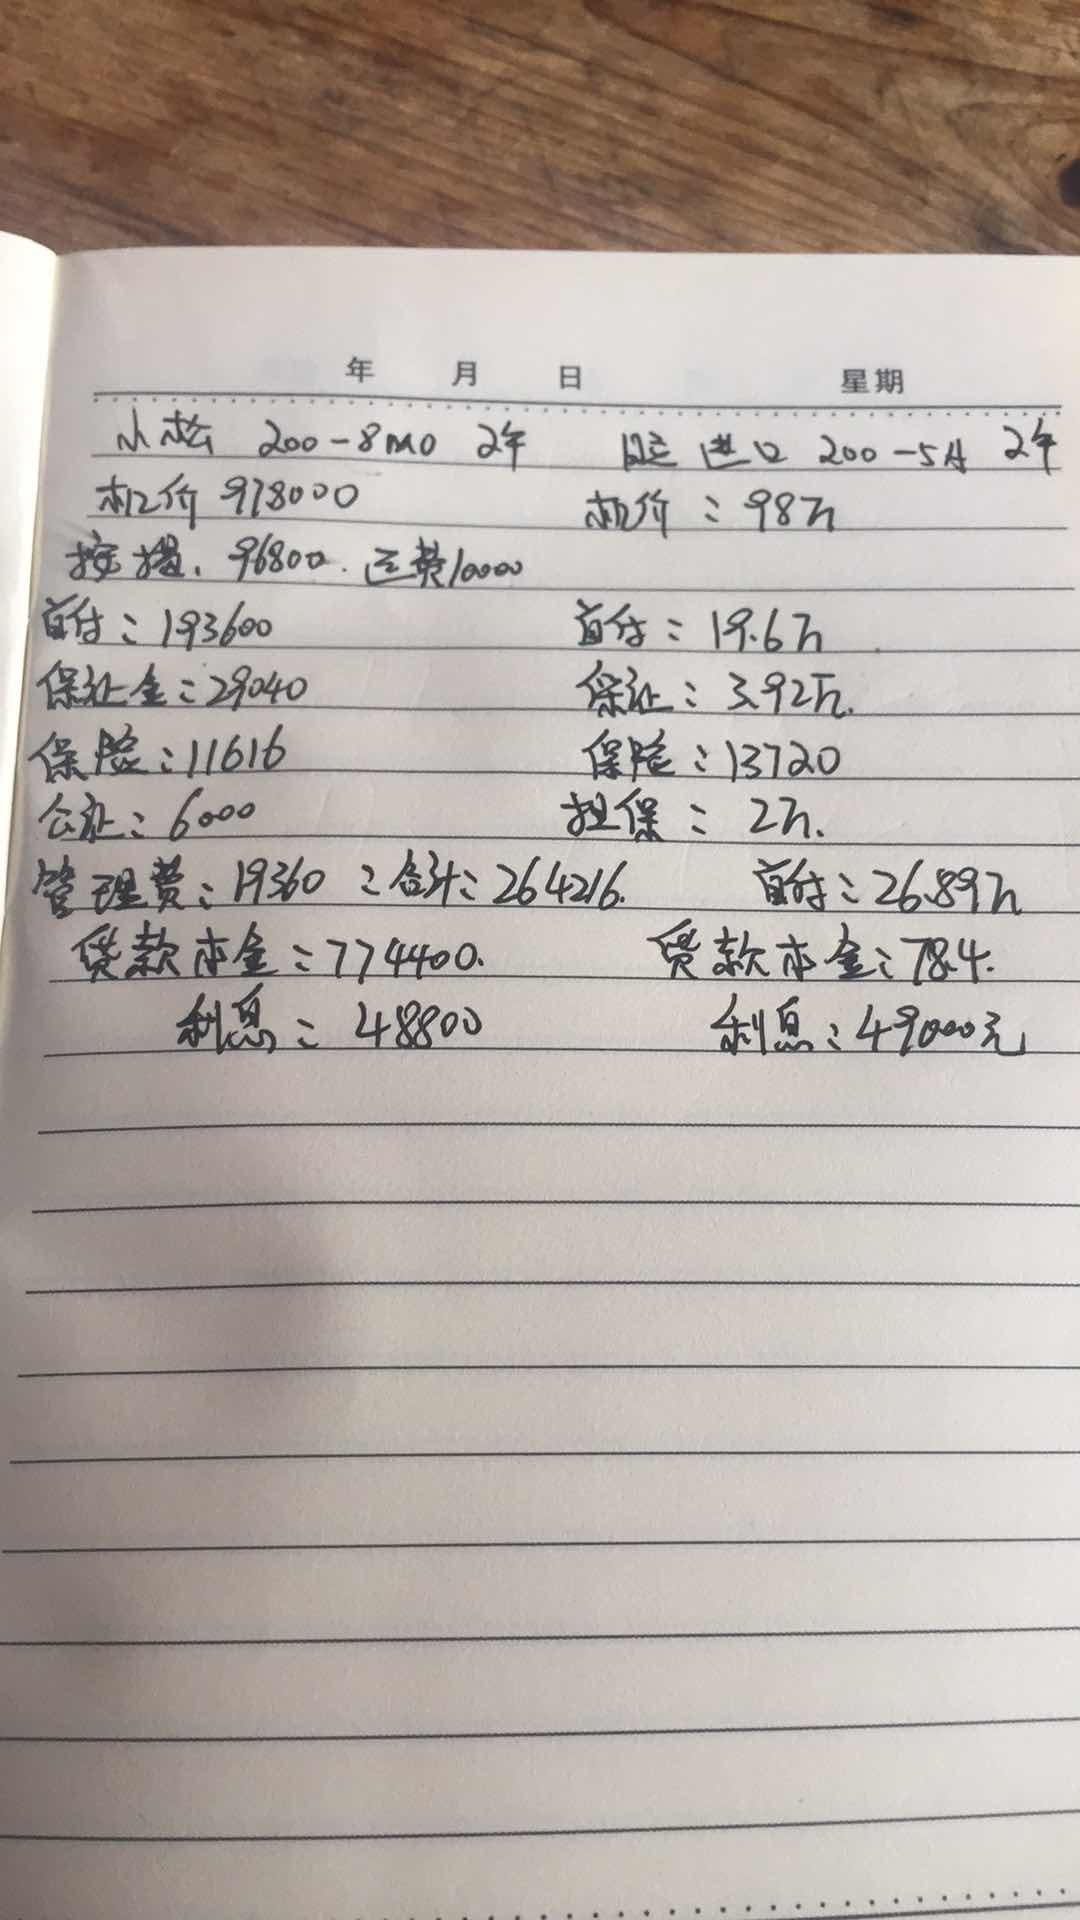 年 月 日 星期
小松 200-8M0 2年 日立进口 200-5A 2年
机价 978000 机价：98万
按揭、96800. 运费10000
首付：193600 首付：19.6万
保证金：29040 保证：3.92万.
保险：11616 保险：13720
公证：6000 担保：2万.
管理费：19360 ：合计：264216. 首付：26.89万
贷款本金：774400. 贷款本金：78.4.
利息：48800 利息：49000元